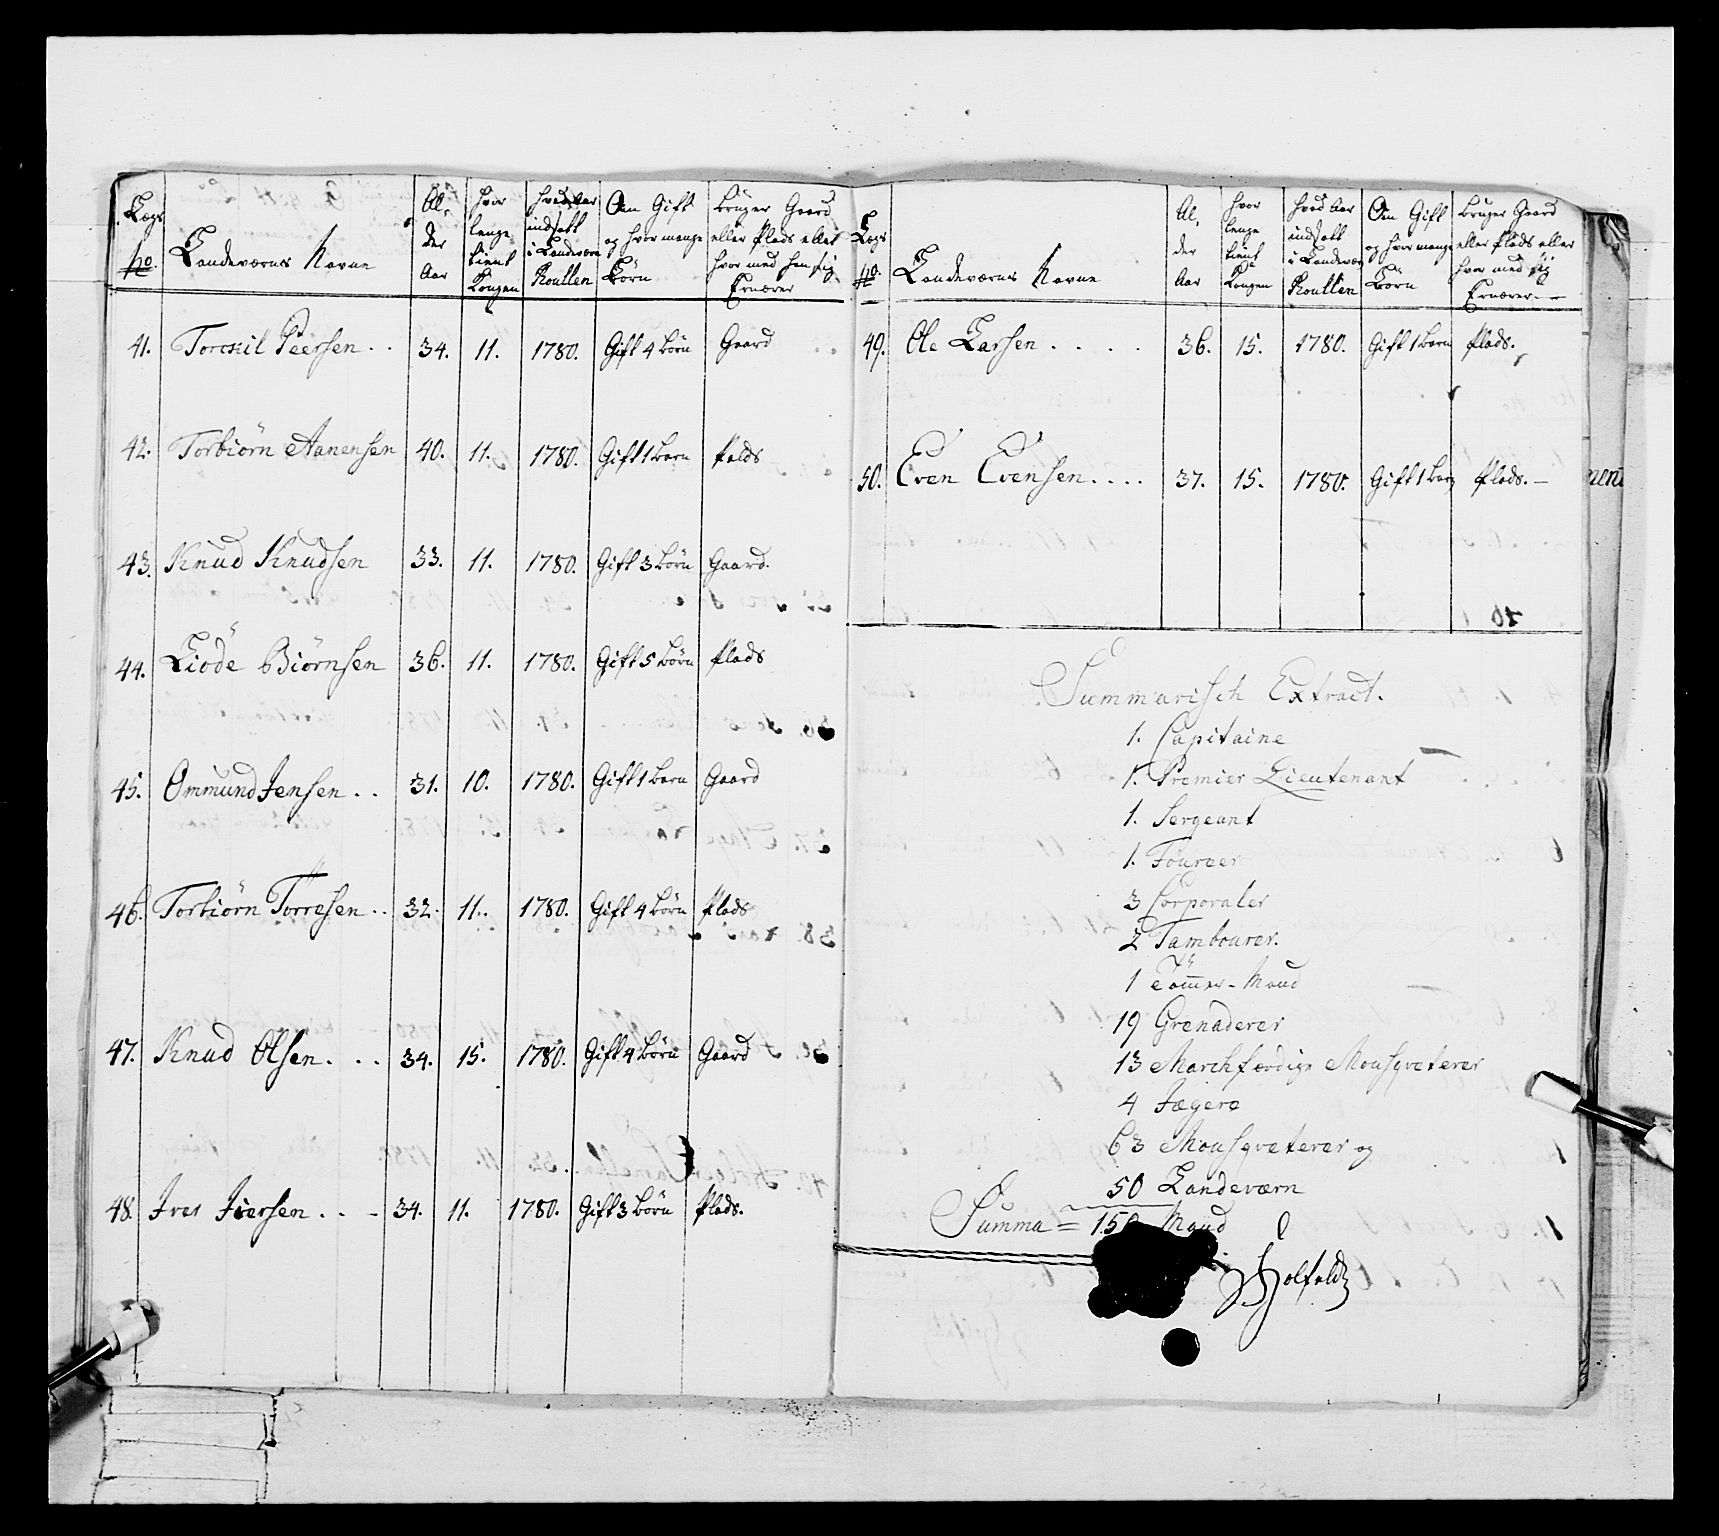 Lægs No. | Landeværns Navne | Al- der Aar | hvor lenge tient Kongen | hvad Aar indsatt i Landeværn Roullen | Om Gift og hvor mange Börn | bruger Gaard eller Plads eller hvor med han sig Ernærer
41. Torckil Peersen . . 34. 11. 1780. Gift 4 börn Gaard
42. Torbiörn Aanensen 40. 11. 1780. Gift 1 barn Plads
43. Knud Knudsen 33. 11. 1780. Gift 3 börn Gaard.
44. Liöde Biörnsen 36. 11. 1780. Gift 5 börn Plads
45. Ommund Jensen . . 31. 10. 1780. Gift 1 barn Gaard
46. Torbiörn Torresen . . 32. 11. 1780. Gift 4 börn Plads
47. Knud Olsen . . . 34. 15. 1780. Gift 4 börn Gaard
48. Iver Iversen . . - 34. 11. 1780. Gift 3 börn Plads.
Lægs No. | Landeværns Navne | Al- der Aar | hvor lenge tient Kongen | hvad Aar indsatt i Landeværn Roullen | Om Gift og hvor mange Börn | bruger Gaard eller Plads eller hvor med sig Ernærer
49. Ole Larsen . . . . 36. 15. 1780. Gift 1 barn Plads.
50. Even Evensen . . . . 37. 15. 1780. Gift 1 barn Plads. -
Summarisch Extract.
1. Capitaine
1. Premier Lieutenant
1. Sergeant
1. Foureer
3 Corporaler
2 Tambourer.
1 Tömmer-Mand
19 Grenaderer
13 Marchfærdige Mousqveterer
4 Jægere
63 Mousqveterer og
50 Landeværn
Summa = 159 Mand